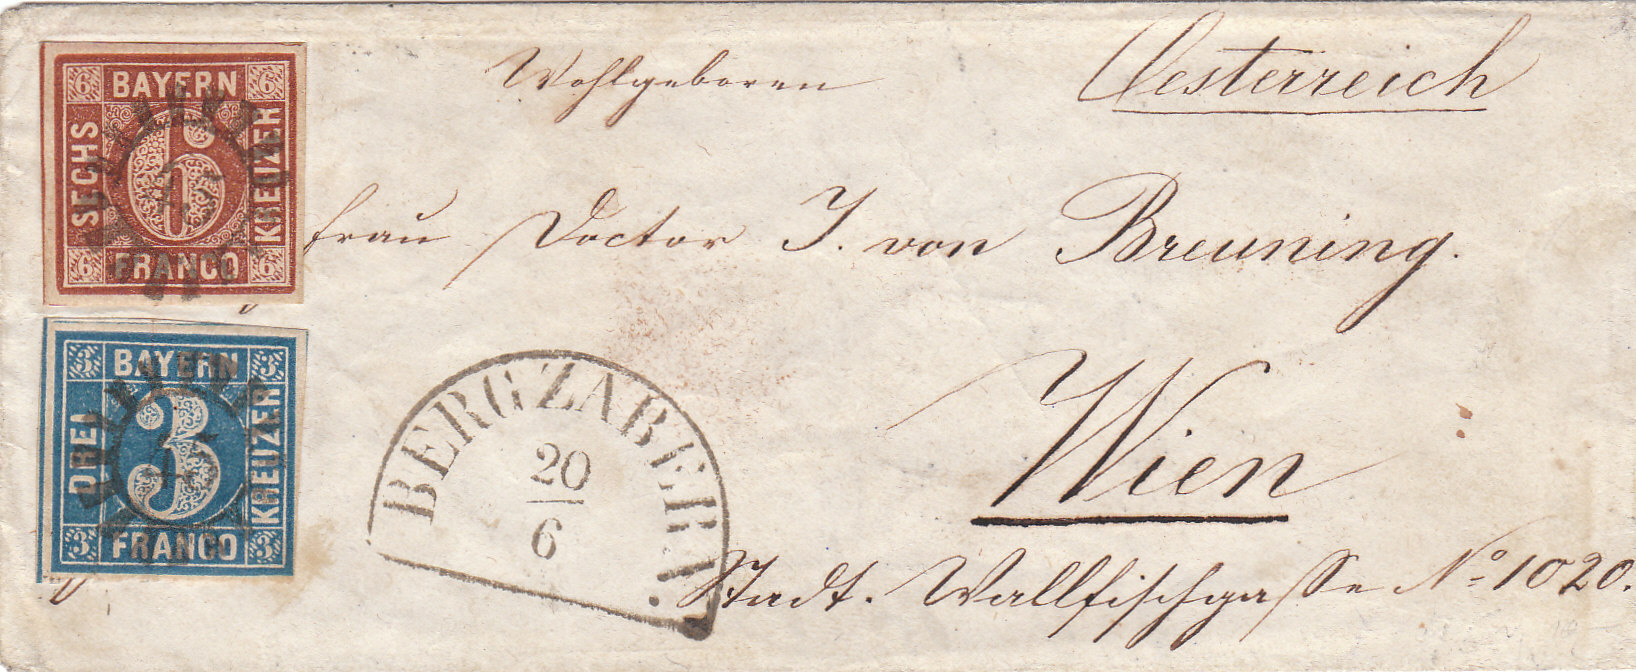 Wohlgeboren
Oesterreich
Frau Doctor J. von Breuning.
Wien
Stadt. Wallfischgasse No 1020.
BAYERN
SECHS
KREUZER
FRANCO
6
6
6
6
6
BAYERN
DREI
KREUZER
FRANCO
3
3
3
3
3
BERGZABERN.
20
6